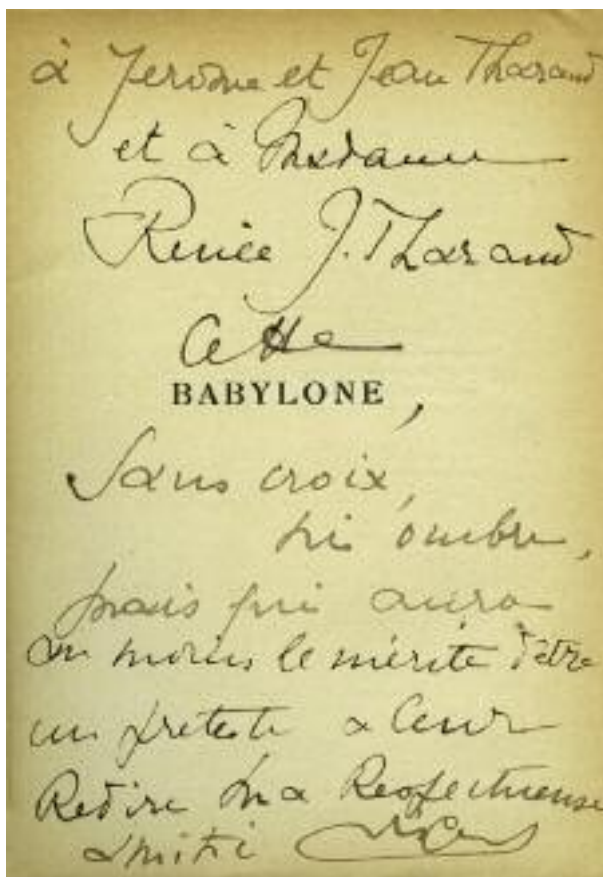 à Jerome et Jean Tharaud
et à Madame
Renée J. Tharaud
Cette
BABYLONE,
Sans croix,
ni ombre,
mais qui aura
au moins le mérite d'être
un prétexte à leur
Redire ma Respectueuse
amitié